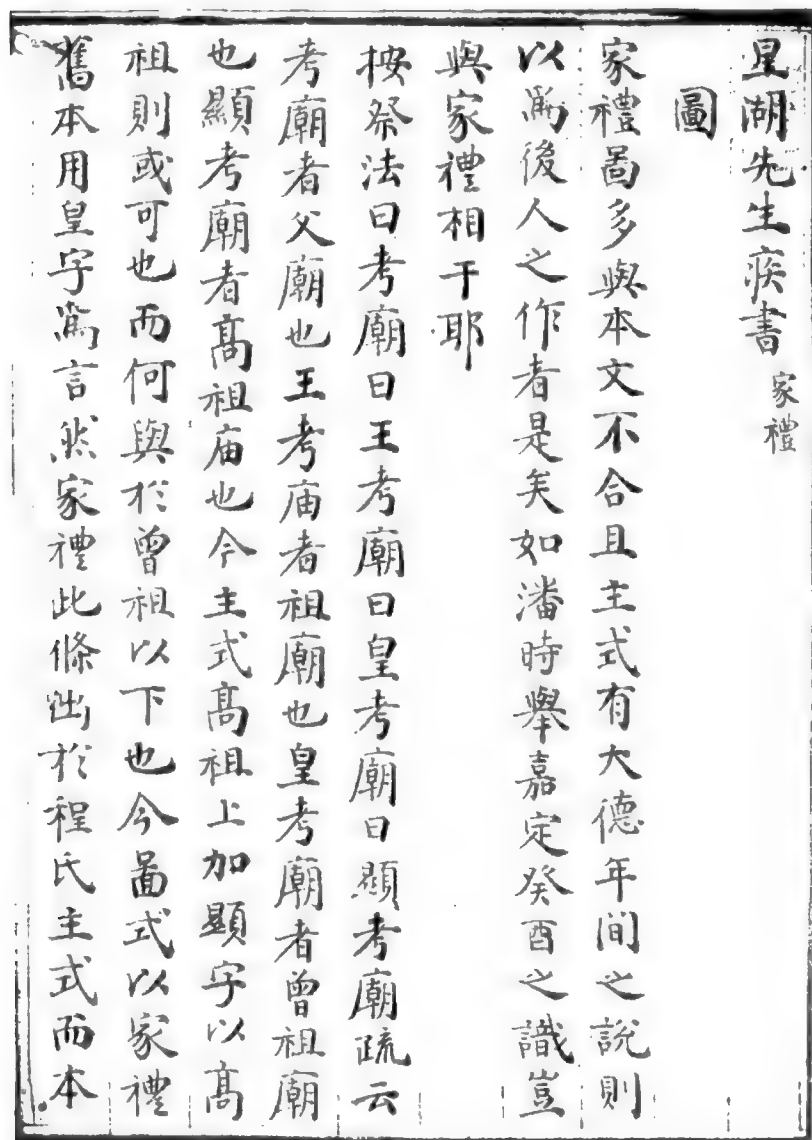 星湖先生疾書 家禮
圖
家禮啚多與本文不合且主式有大德年间之說則
以爲後人之作者是矣如潘時擧嘉定癸酉之識豈
與家禮相干耶
按祭法曰考廟曰王考廟曰皇考廟曰顯考廟疏云
考廟者父廟也王考庙者祖廟也皇考廟者曾祖廟
也顯考廟者高祖庙也今主式高祖上加顯字以高
祖則或可也而何與於曾祖以下也今啚式以家禮
舊本用皇字爲言然家禮此條出於程氏主式而本